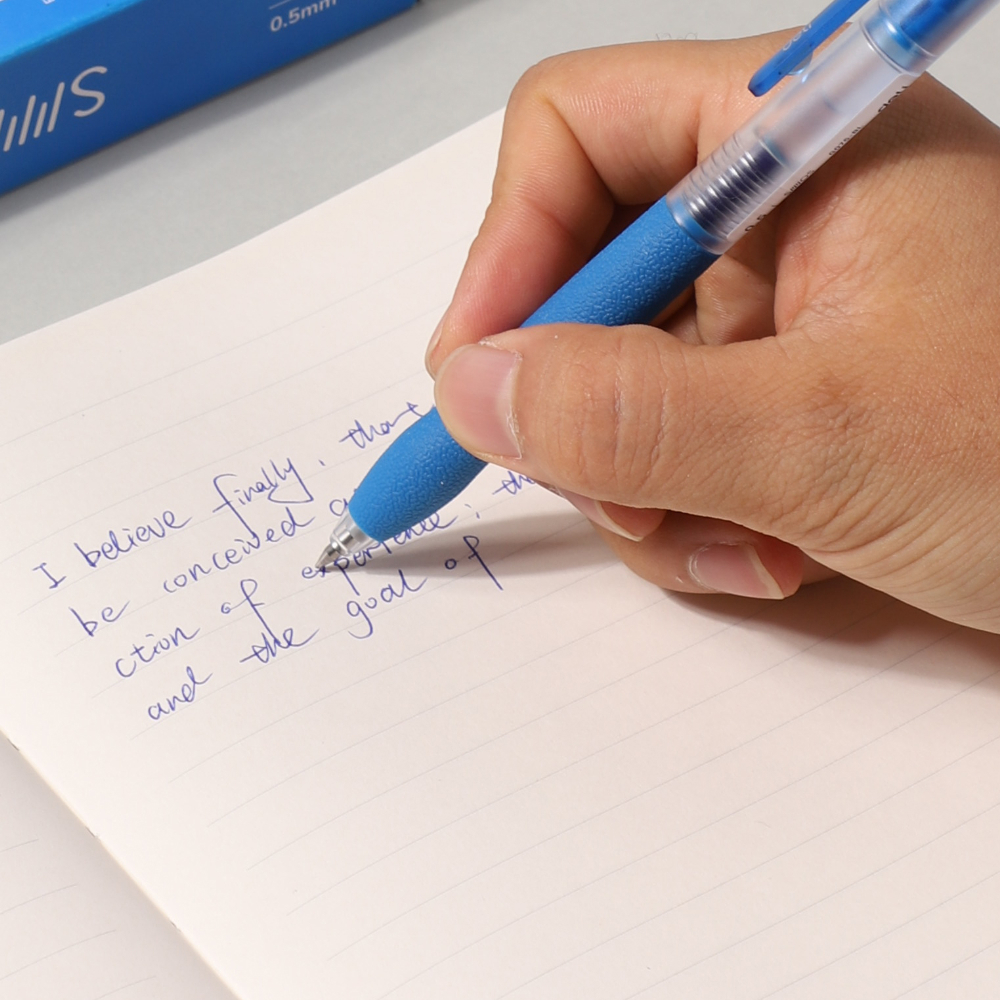 0.5mm
S
I believe finally, that
be conceived
ction of experience; the
and the goal of